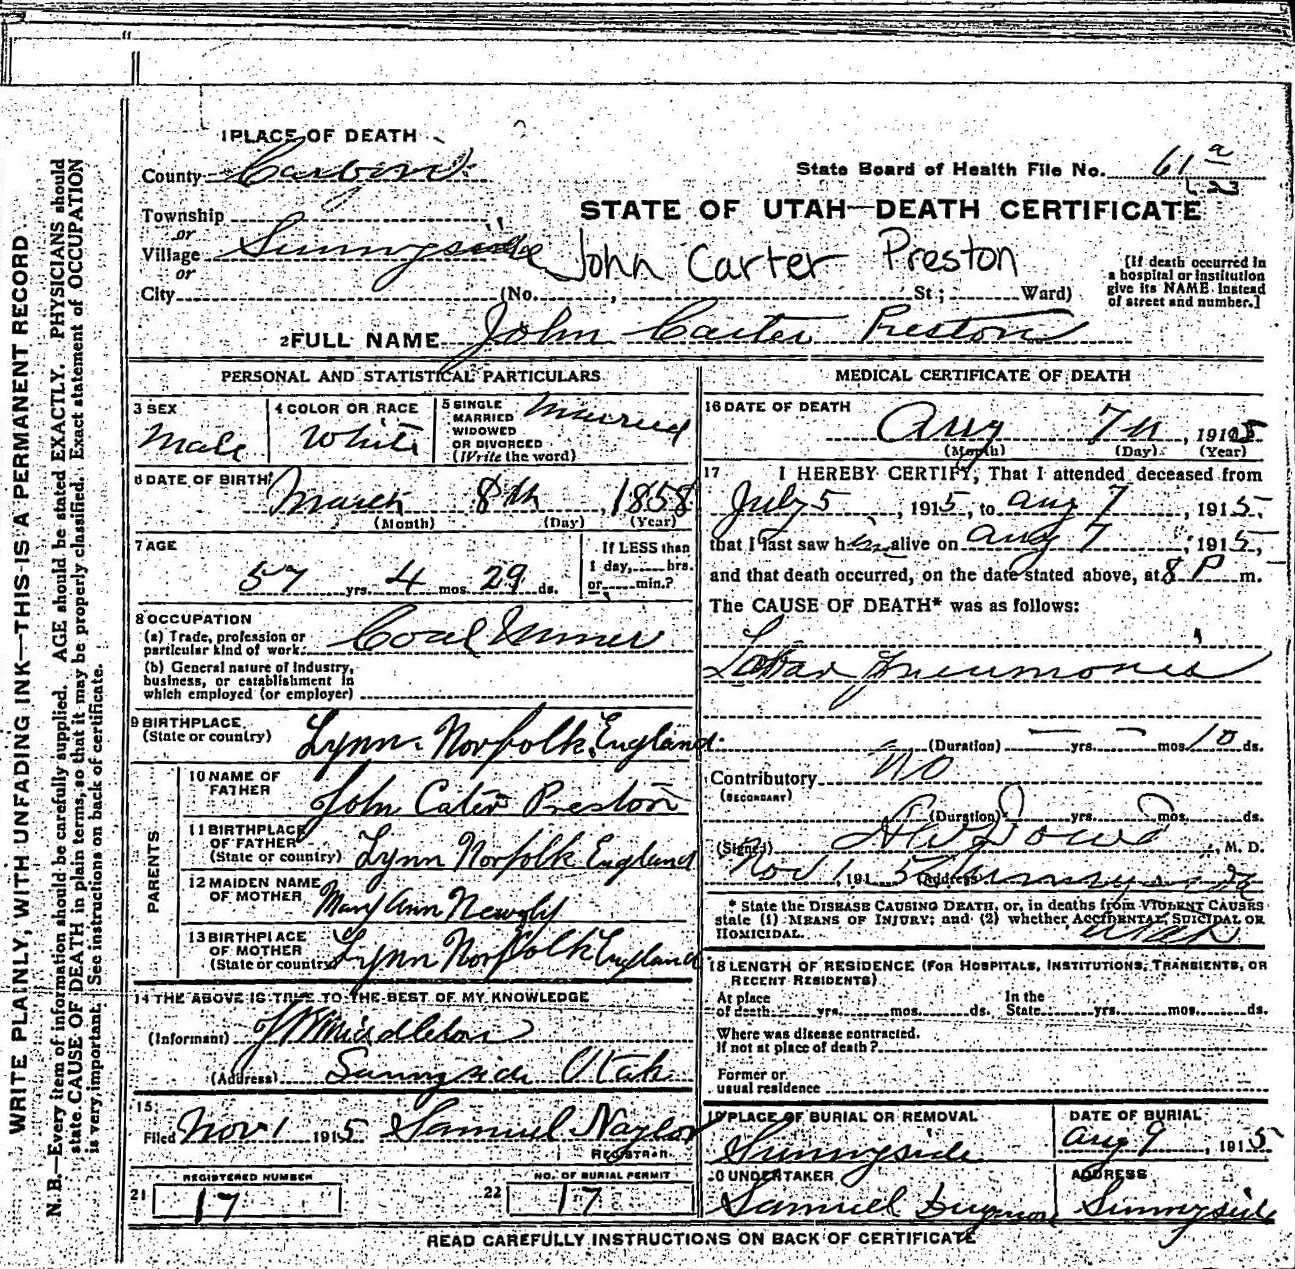 WRITE PLAINLY, WITH UNFADING INK—THIS IS A PERMANENT RECORD
N. B.—Every item of information should be carefully supplied. AGE should be stated EXACTLY. PHYSICIANS should
state CAUSE OF DEATH in plain terms, so that it may be properly classified. Exact statement of OCCUPATION
is very important. See instructions on back of certificate.
1 PLACE OF DEATH
County Carbon
State Board of Health File No. 61 a
Township
or
STATE OF UTAH—DEATH CERTIFICATE
Village Sunnyside
John Carter Preston
or
City (No. , St; Ward)
[If death occurred in
a hospital or institution
give its NAME instead
of street and number.]
2 FULL NAME John Carter Preston
PERSONAL AND STATISTICAL PARTICULARS
3 SEX
Male
4 COLOR OR RACE
White
5 SINGLE
MARRIED
WIDOWED
OR DIVORCED
(Write the word)
Married
6 DATE OF BIRTH
March 8th, 1858
(Month) (Day) (Year)
7 AGE
57 yrs. 4 mos. 29 ds.
If LESS than
1 day, hrs.
or min.?
8 OCCUPATION
(a) Trade, profession or
particular kind of work Coal Miner
(b) General nature of industry,
business, or establishment in
which employed (or employer)
9 BIRTHPLACE
(State or country) Lynn. Norfolk, England.
PARENTS
10 NAME OF
FATHER John Cater Preston
11 BIRTHPLACE
OF FATHER
(State or country) Lynn Norfolk England
12 MAIDEN NAME
OF MOTHER Mary Ann
13 BIRTHPLACE
OF MOTHER
(State or country) Lynn Norfolk England
14 THE ABOVE IS TRUE TO THE BEST OF MY KNOWLEDGE
(Informant) Middleton
(Address) Sunnyside Utah
15
Filed Nov 1 1915 Samuel Naylor
REGISTRAR
REGISTERED NUMBER
21 17
NO. OF BURIAL PERMIT
22 17
MEDICAL CERTIFICATE OF DEATH
16 DATE OF DEATH
Aug 7th, 1915
(Month) (Day) (Year)
17 I HEREBY CERTIFY, That I attended deceased from
July 5, 1915, to Aug 7, 1915,
that I last saw him alive on Aug 7, 1915,
and that death occurred, on the date stated above, at 8 P m.
The CAUSE OF DEATH* was as follows:
Lobar Pneumonia
(Duration) yrs. mos. 10 ds.
Contributory no
(SECONDARY)
(Duration) yrs. mos. ds.
(Signed) Dowd, M. D.
Nov 1, 1915 (Address) Sunnyside
Utah
* State the DISEASE CAUSING DEATH, or, in deaths from VIOLENT CAUSES
state (1) MEANS OF INJURY; and (2) whether ACCIDENTAL, SUICIDAL OR
HOMICIDAL.
18 LENGTH OF RESIDENCE (FOR HOSPITALS, INSTITUTIONS, TRANSIENTS, OR
RECENT RESIDENTS)
At place
of death yrs. mos. ds.
In the
State yrs. mos. ds.
Where was disease contracted,
if not at place of death?
Former or
usual residence
19 PLACE OF BURIAL OR REMOVAL
Sunnyside
DATE OF BURIAL
Aug 9, 1915
20 UNDERTAKER
Samuel
ADDRESS
Sunnyside
READ CAREFULLY INSTRUCTIONS ON BACK OF CERTIFICATE